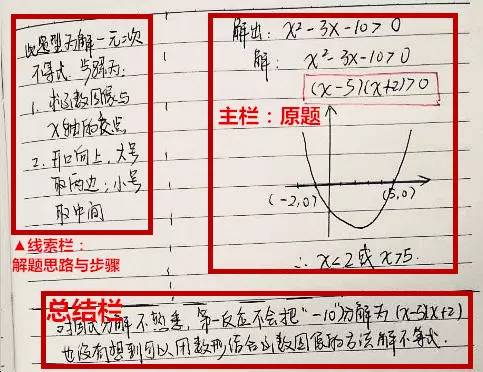 此题型为解一元二次
不等式 步骤为:
1. 求函数图像与
X轴的交点
2. 开口向上,大号
取两边;小号
取中间
▲线索栏:
解题思路与步骤
解出: x²-3x-10>0
解: x²-3x-10>0
(x-5)(x+2)>0
主栏:原题
(-2,0)
(5,0)
∴ x<2或 x>5.
总结栏
对因式分解不熟悉,第一反应不会把“-10”分解为 (x-5)(x+2)
也没有想到可以用数形结合函数图像的方法解不等式.